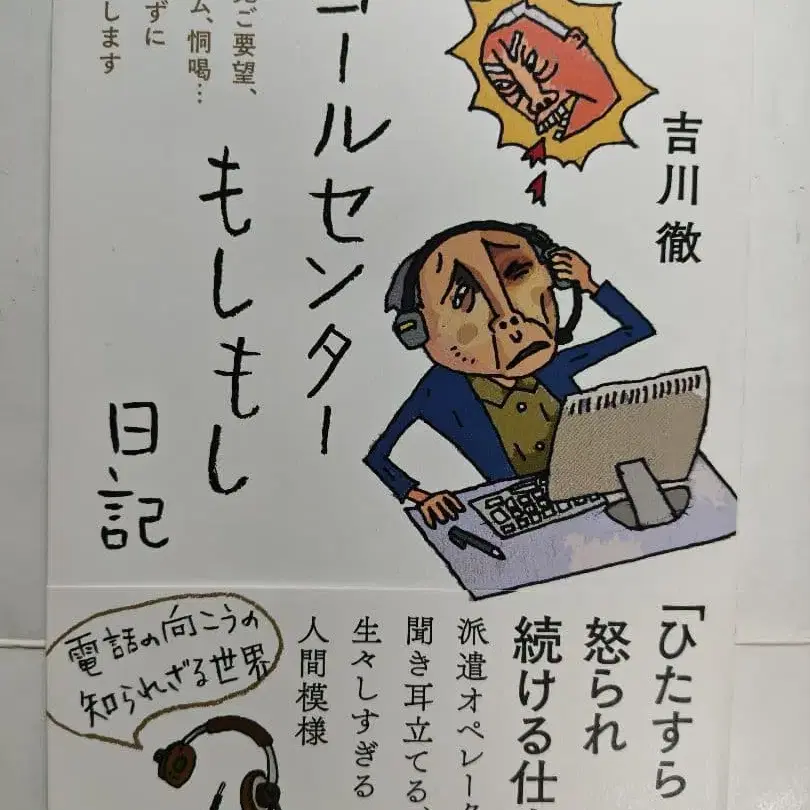 吉川徹
コールセンター
もしもし
日記
ご要望、
ム、恫喝…
ずに
します
「ひたすら
怒られ
続ける仕
派遣オペレータ
聞き耳立てる、
生々しすぎる
人間模様
電話の向こうの
知られざる世界